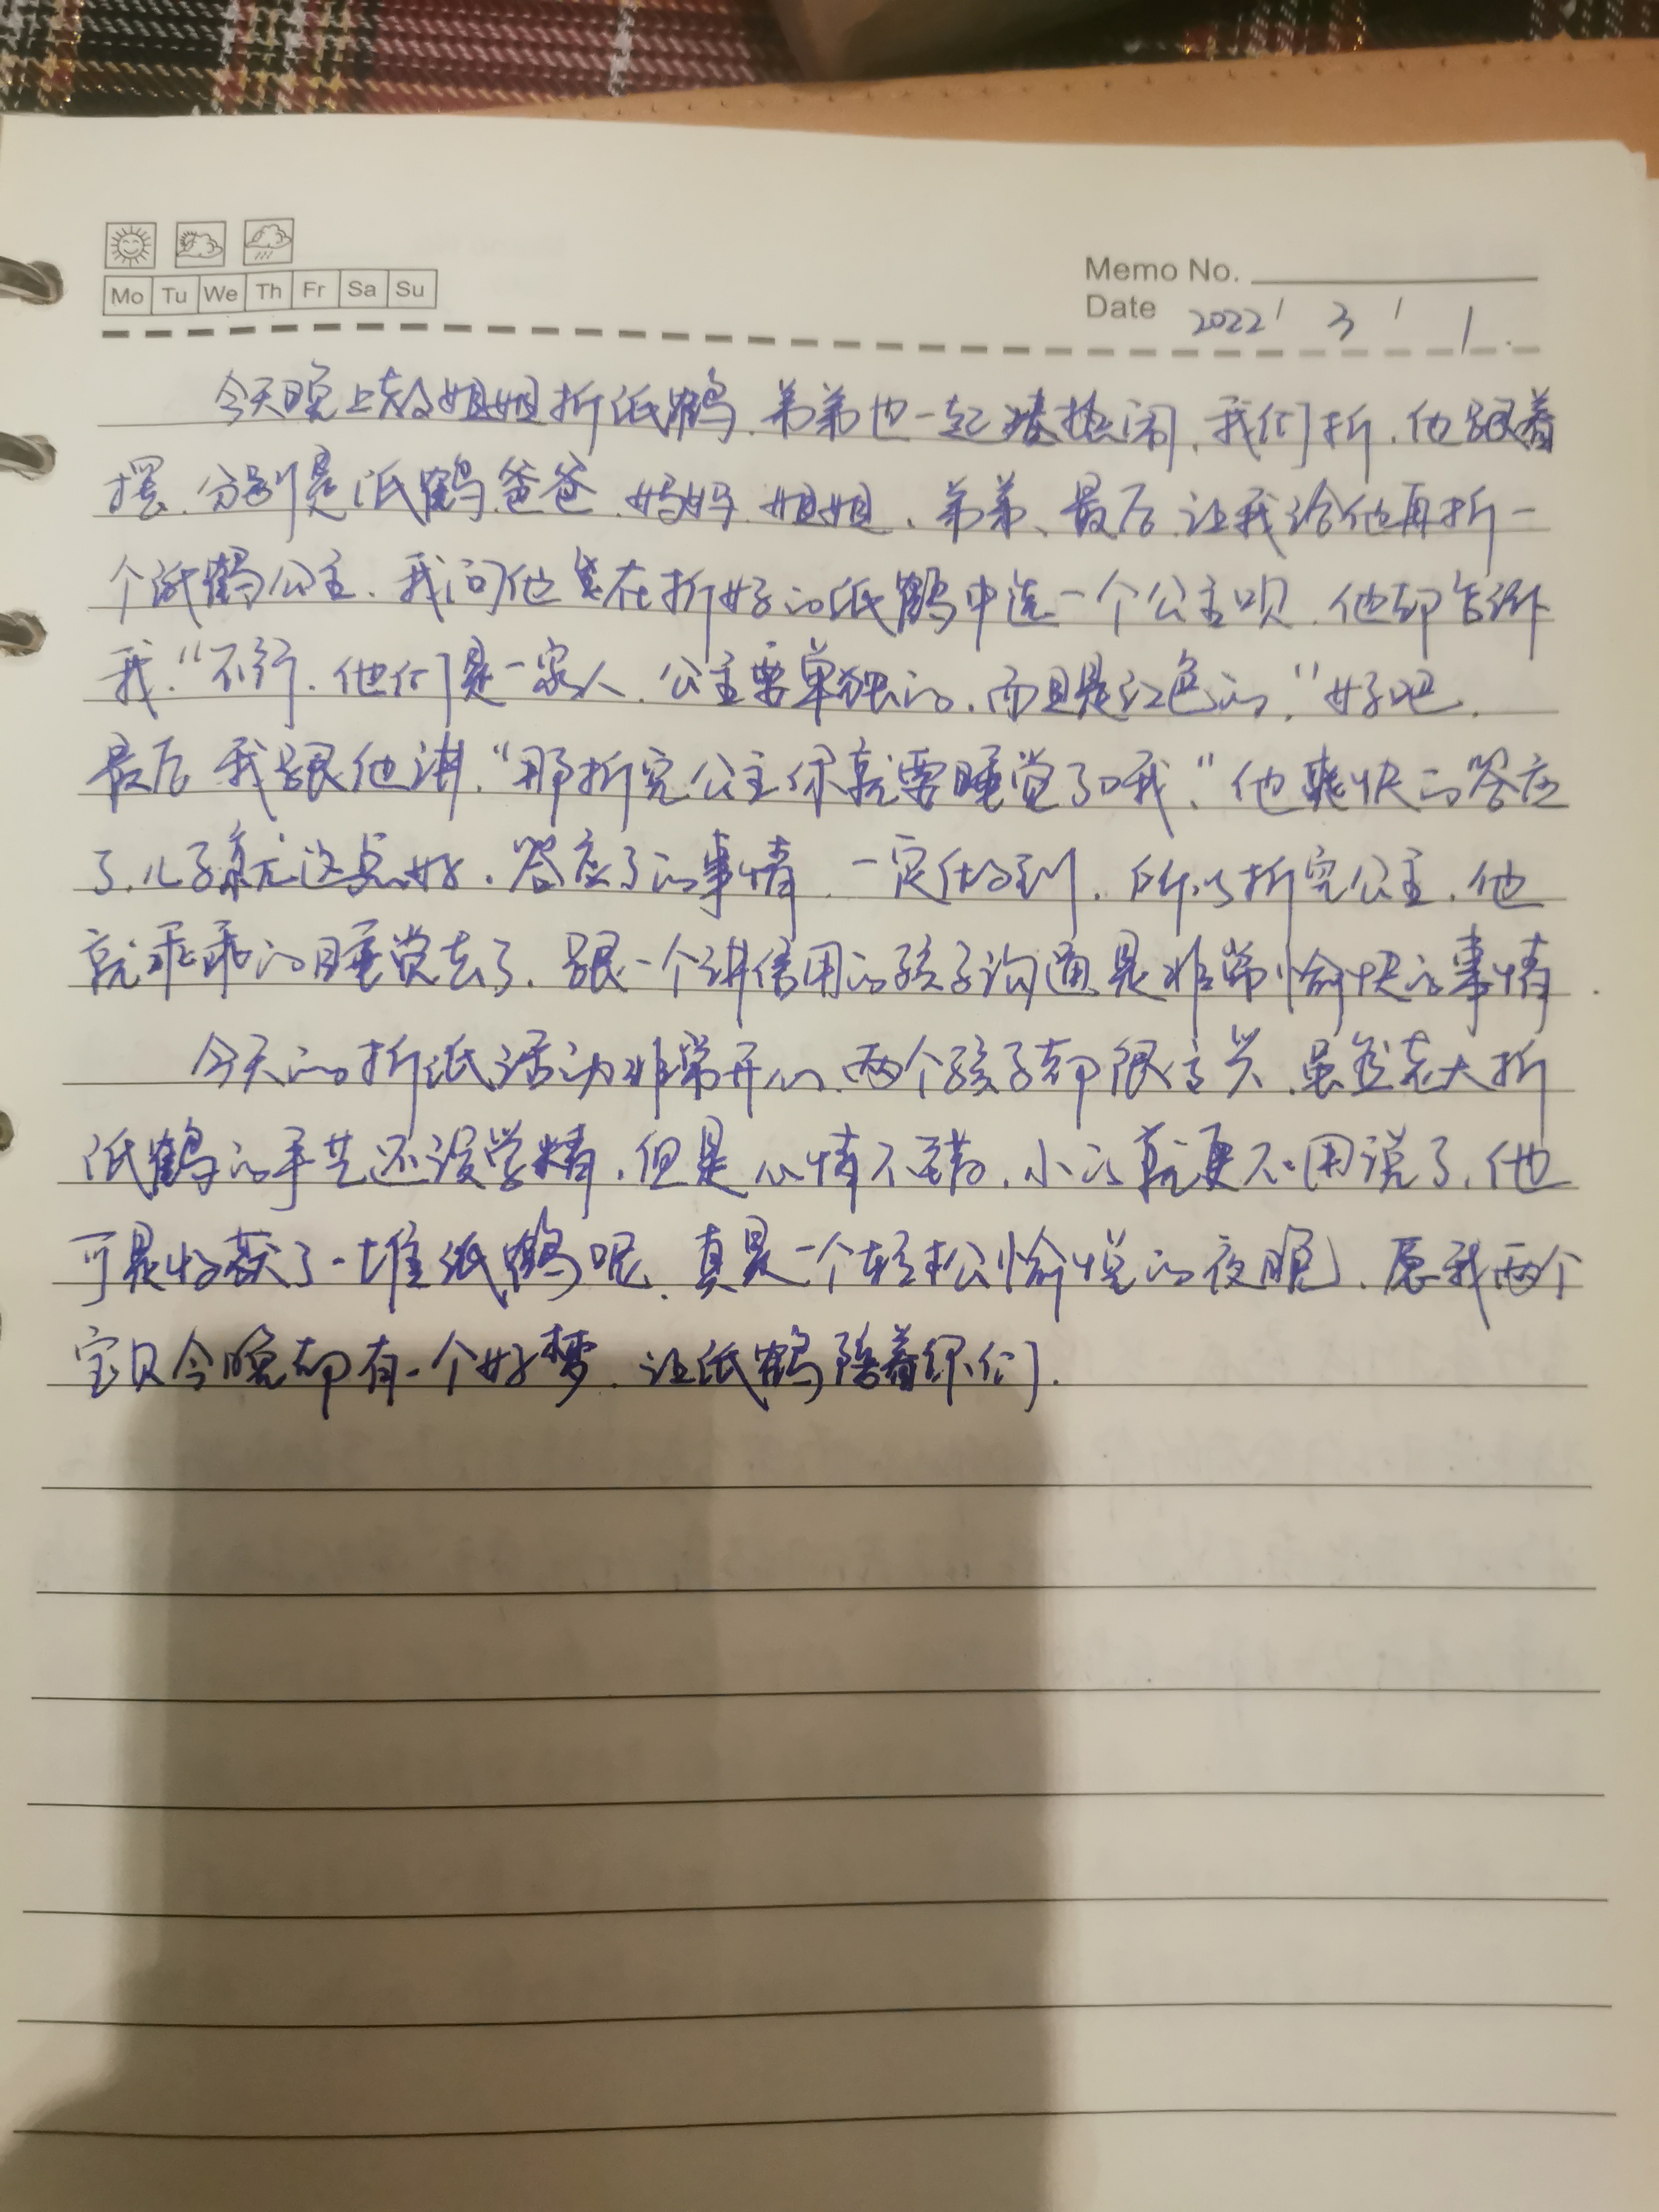 Mo Tu We Th Fr Sa Su
Memo No.
Date 2022 / 3 / 1.
今天晚上教姐姐折纸鹤,弟弟也一起凑热闹,我们折,他跟着
摆,分别是纸鹤爸爸、妈妈、姐姐、弟弟、最后让我给他再折一
个纸鹤公主,我问他在折好的纸鹤中选一个公主呗,他却告诉
我,“不行,他们是一家人,公主要单独的,而且是红色的,”好吧,
最后我跟他讲,“那折完公主你就要睡觉了哦,”他爽快的答应
了,儿子就这点好,答应了的事情,一定做到,所以折完公主,他
就乖乖的睡觉去了,跟一个讲信用的孩子沟通是非常愉快的事情.
今天的折纸活动非常开心,两个孩子都很高兴,虽然老大折
纸鹤的手艺还没学精,但是心情不错,小的就更不用说了,他
可是收获了一堆纸鹤呢,真是一个轻松愉悦的夜晚,愿我两个
宝贝今晚都有一个好梦,让纸鹤陪着你们.